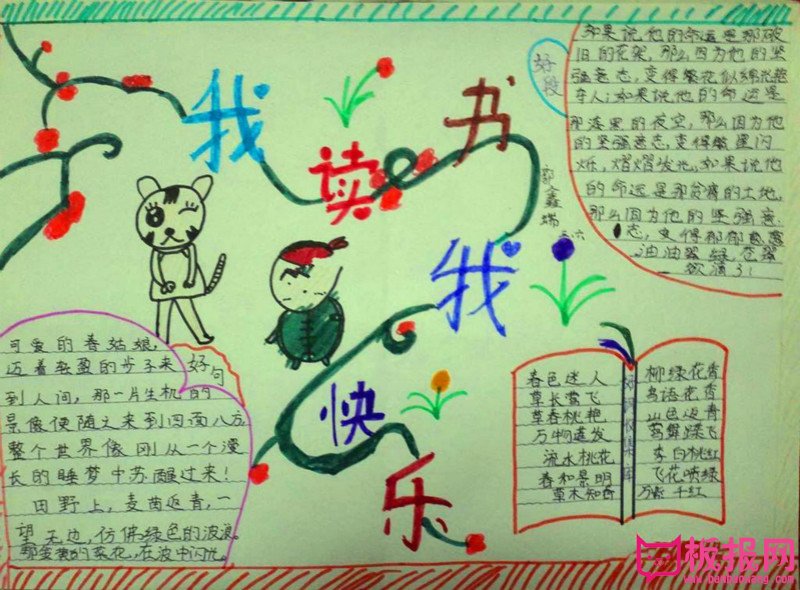 我读书
我快乐
好段
如果说他的命运是那破
旧的花架，那么因为他的坚
强意志，变得繁花似锦光艳
夺人；如果说他的命运是
那漆黑的夜空，那么因为他
的坚强意志，变得繁星闪
烁，熠熠发光。如果说他
的命运是那贫瘠的土地，
那么因为他的坚强意
志，变得郁郁葱葱
油油翠绿
三六
好句
可爱的春姑娘，
迈着轻盈的步子来
到人间，那一片生机的
景像便随之来到四面八方
整个世界像刚从一个漫
长的睡梦中苏醒过来！
田野上，麦苗返青，一
望无边，仿佛绿色的波浪。
那金黄的菜花，在波中闪光。
春色迷人
草长莺飞
草春桃艳
万物蓬发
流水桃花
春和景明
草木知春
柳绿花香
鸟语花香
山色返青
莺舞蝶飞
李白桃红
飞花喷绿
万紫千红
板报网
www.banbaowang.com